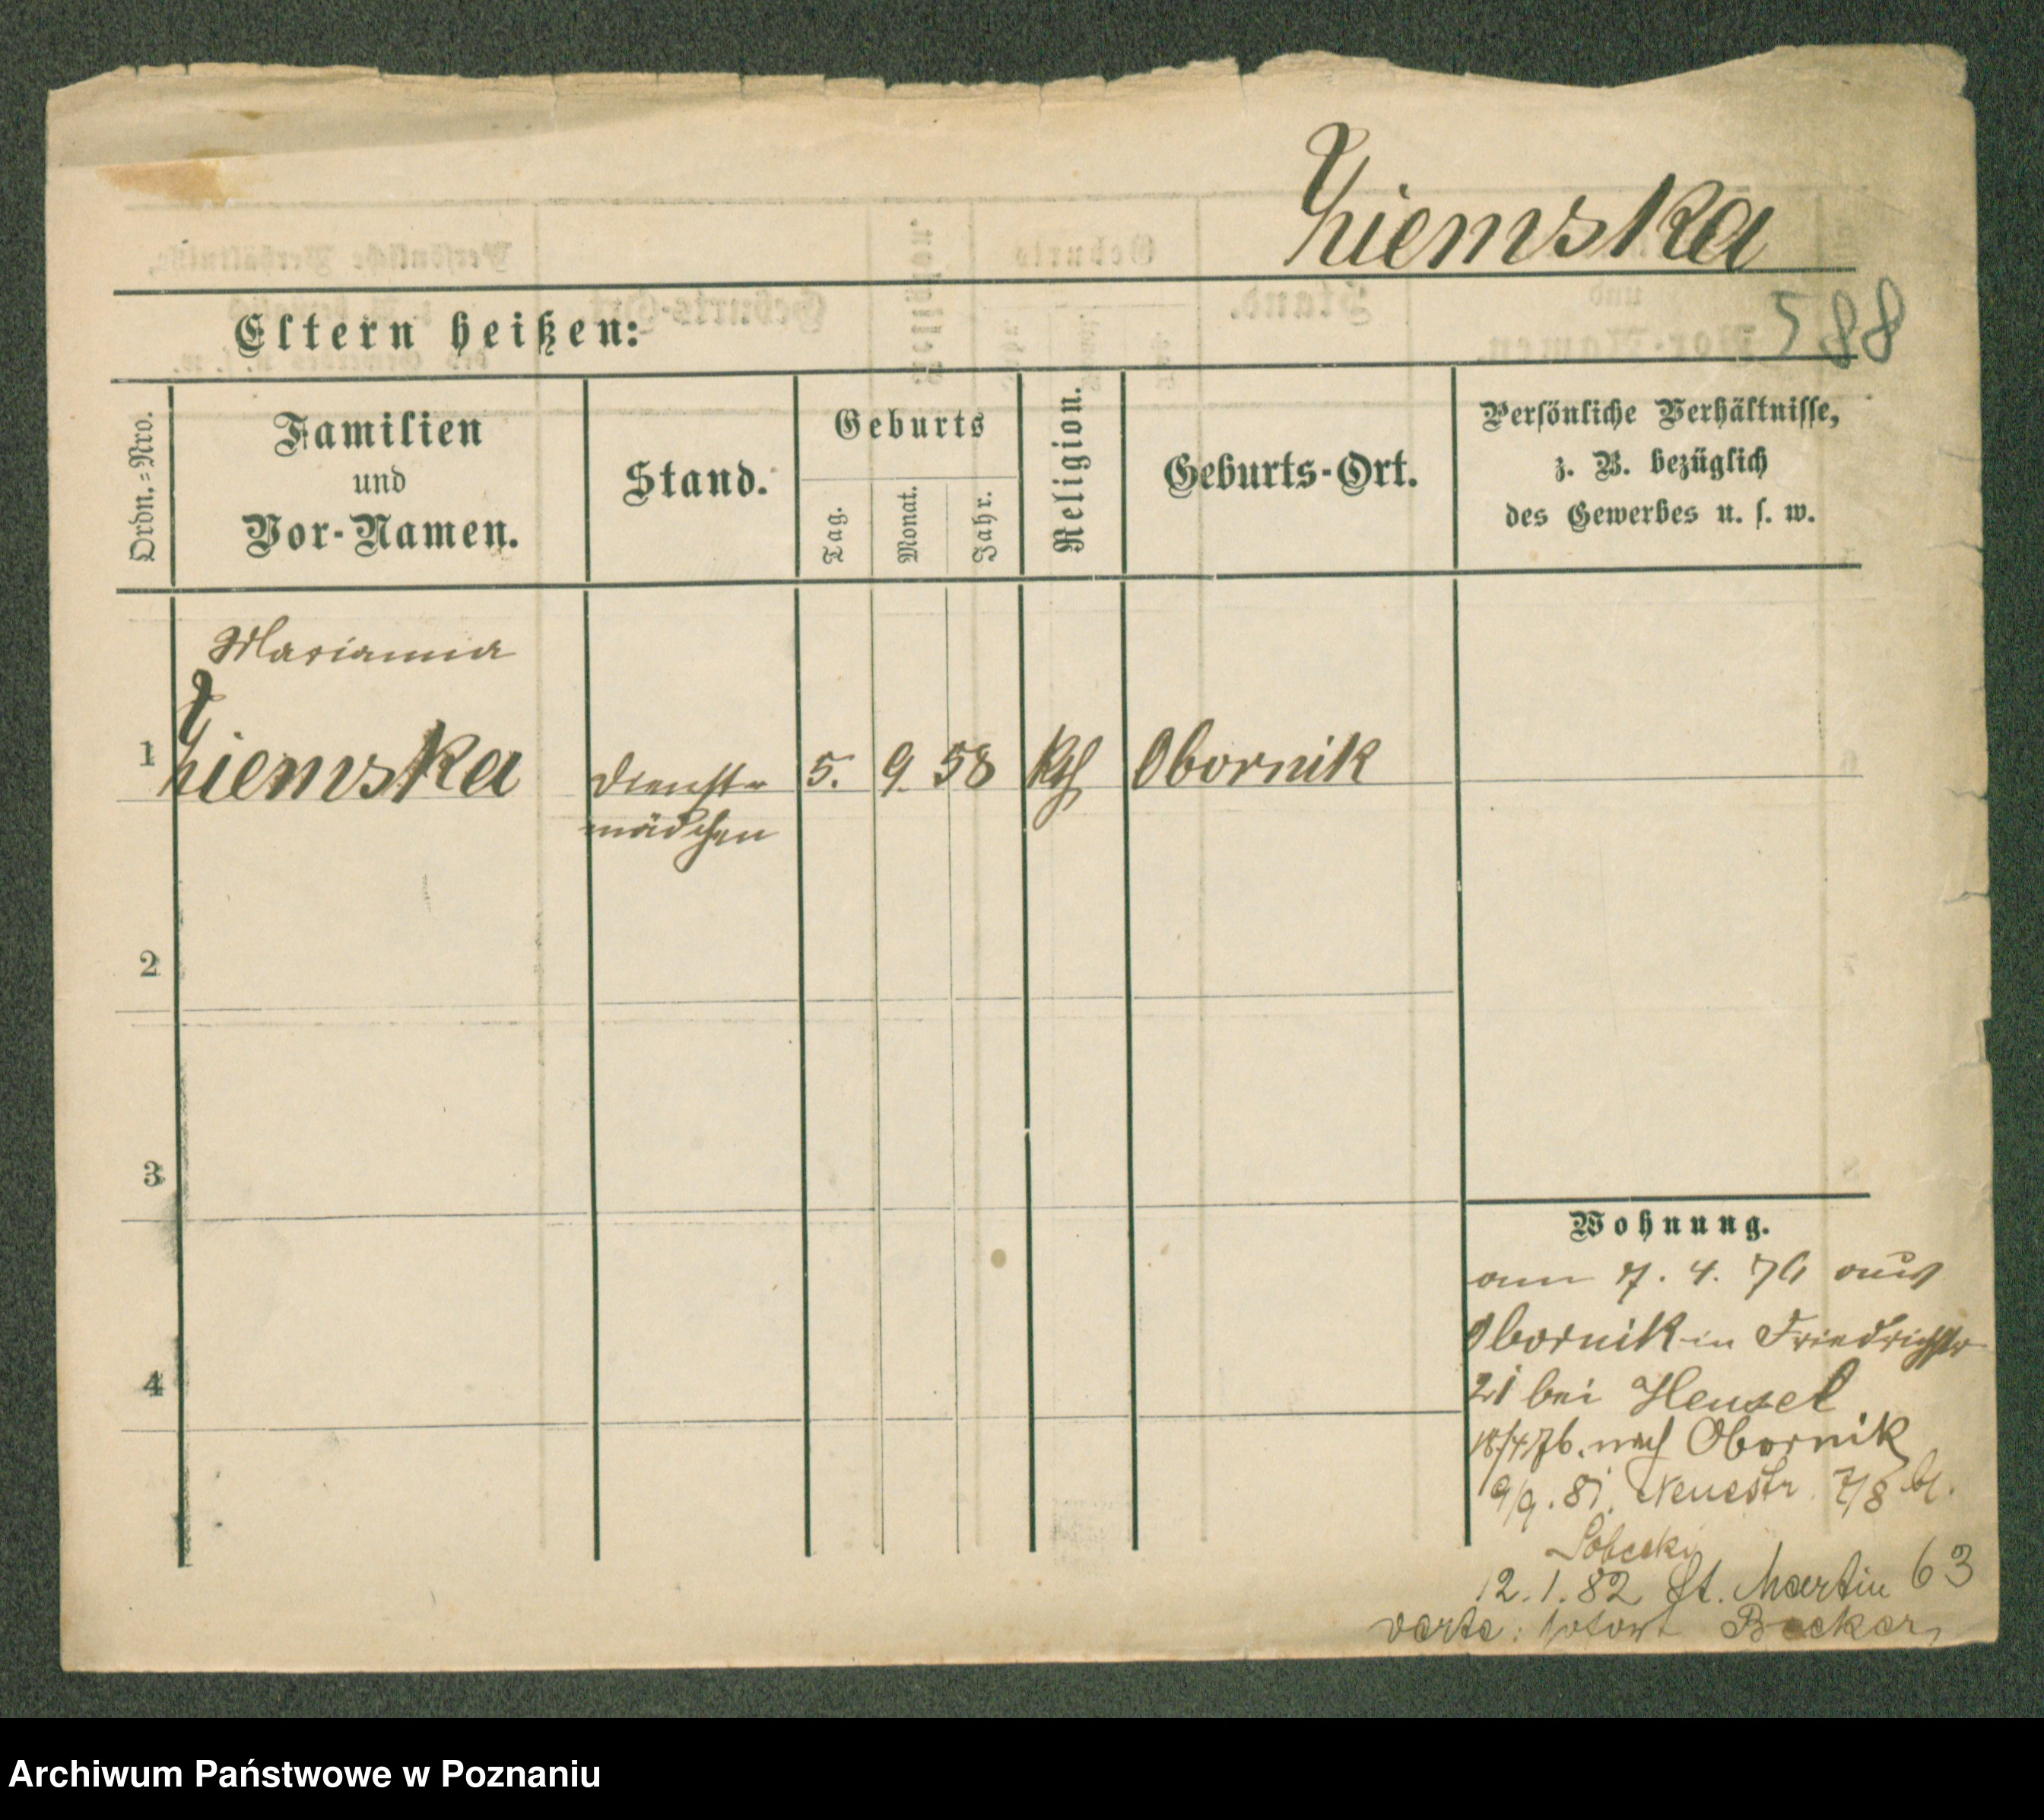 Ziemska
588
Eltern heißen:
Ordn.=Nro.
Familien
und
Vor-Namen.
Stand.
Geburts
Tag.
Monat.
Jahr.
Religion.
Geburts-Ort.
Persönliche Verhältnisse,
z. B. bezüglich
des Gewerbes u. s. w.
Marianna
1 Ziemska Dienst- 5. 9. 58 kth Obornik
mädchen
2
3
4
Wohnung.
am 7. 4. 76 aus
Obornik in Friedrichstr
21 bei Hensel
18/4 76. nach Obornik
9/9. 81. Neuestr. 7/8 bl.
Sobecki
12. 1. 82 St. Martin 63
Archiwum Państwowe w Poznaniu